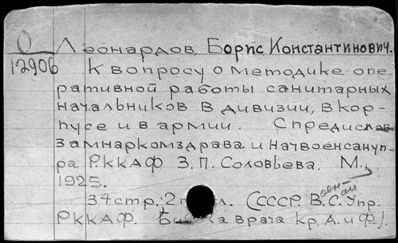 О
12906
Леонардов, Борис Константинович.
К вопросу о методике опе-
ративной работы санитарных
начальников в дивизии, в кор-
пусе и в армии. С предислов.
Замнаркомздрава и Начвоенсанупр-
ра РККАФ З.П. Соловьева. М.,
1925.
34 стр.; 2 л. (СССР. В.С. Упр.
РККАФ. врача Кр. А. и Ф.).